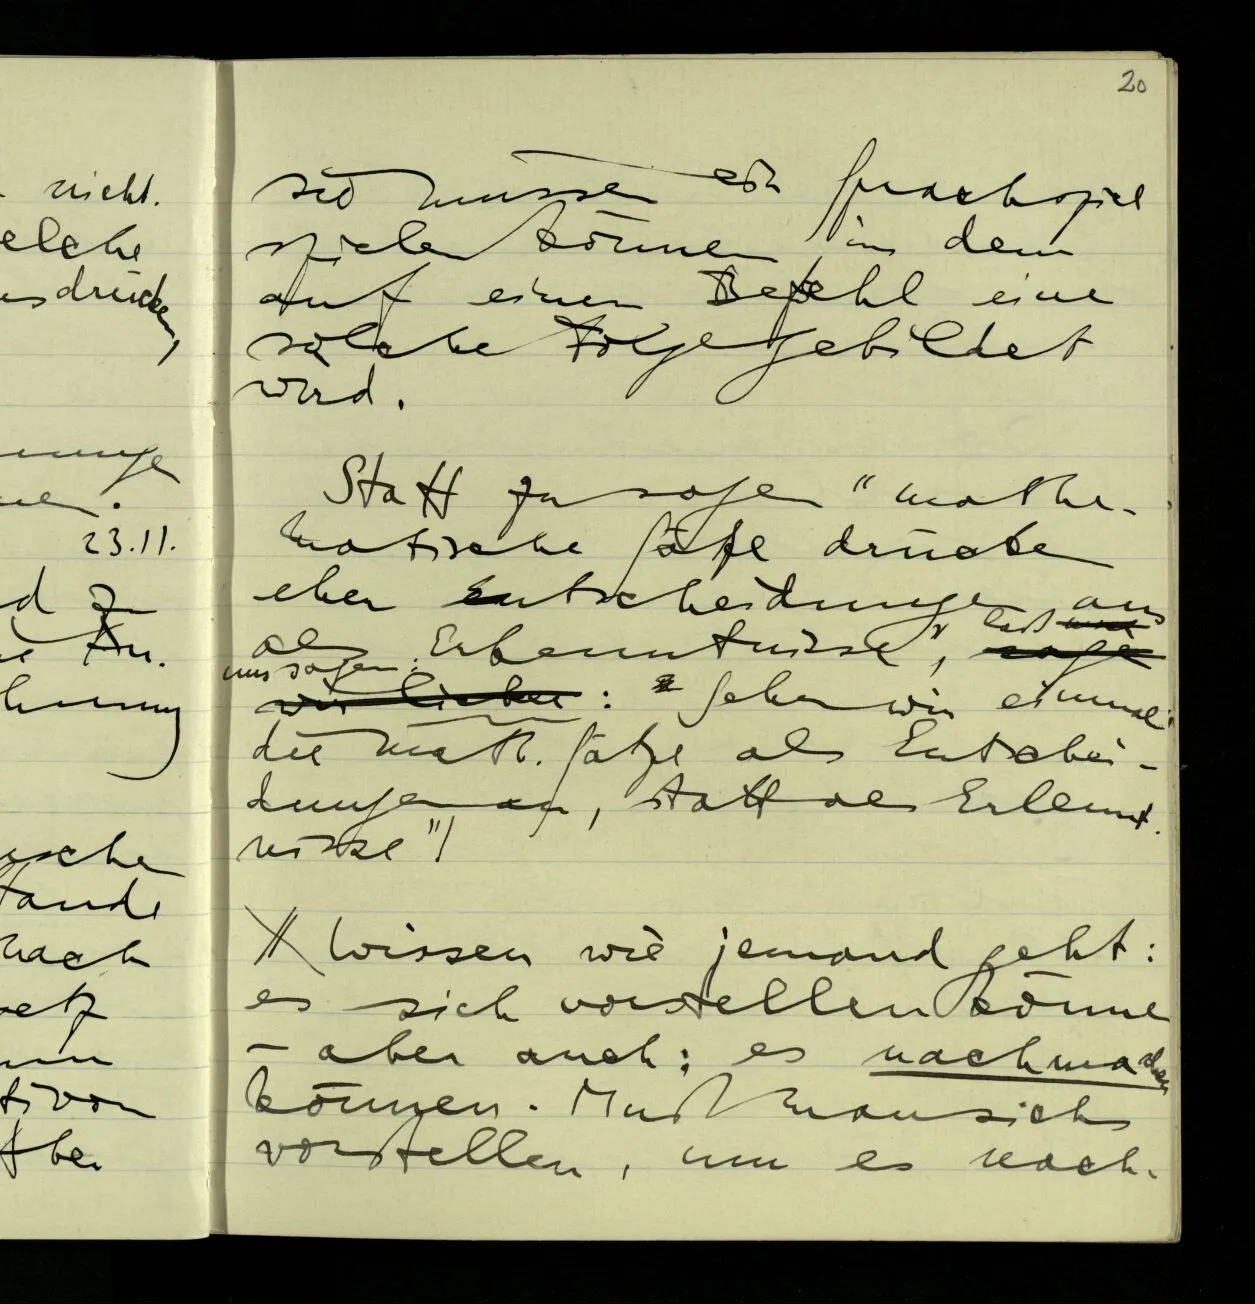 nicht.
elche
usdrücken,
nungen
nen.
23.11.
d zu
hnung
ische
stande
nach
etz
tivon
Aber
20
sie müssen ein Sprachspiel
spielen können in dem
auf einen Befehl eine
solche Folge gebildet
wird.
Statt zu sagen "mathe-
matische Sätze drücken
eher Entscheidungen aus
als Erkenntnisse", laß
uns sagen: sage
wir lieber : Sehen wir einmal
die math. Sätze als Entschei-
dungen an, statt als Erkennt-
nisse"!
Wissen wie jemand geht:
es sich vorstellen können
– aber auch: es nachmachen
können. Muß man sichs
vorstellen, um es nach-